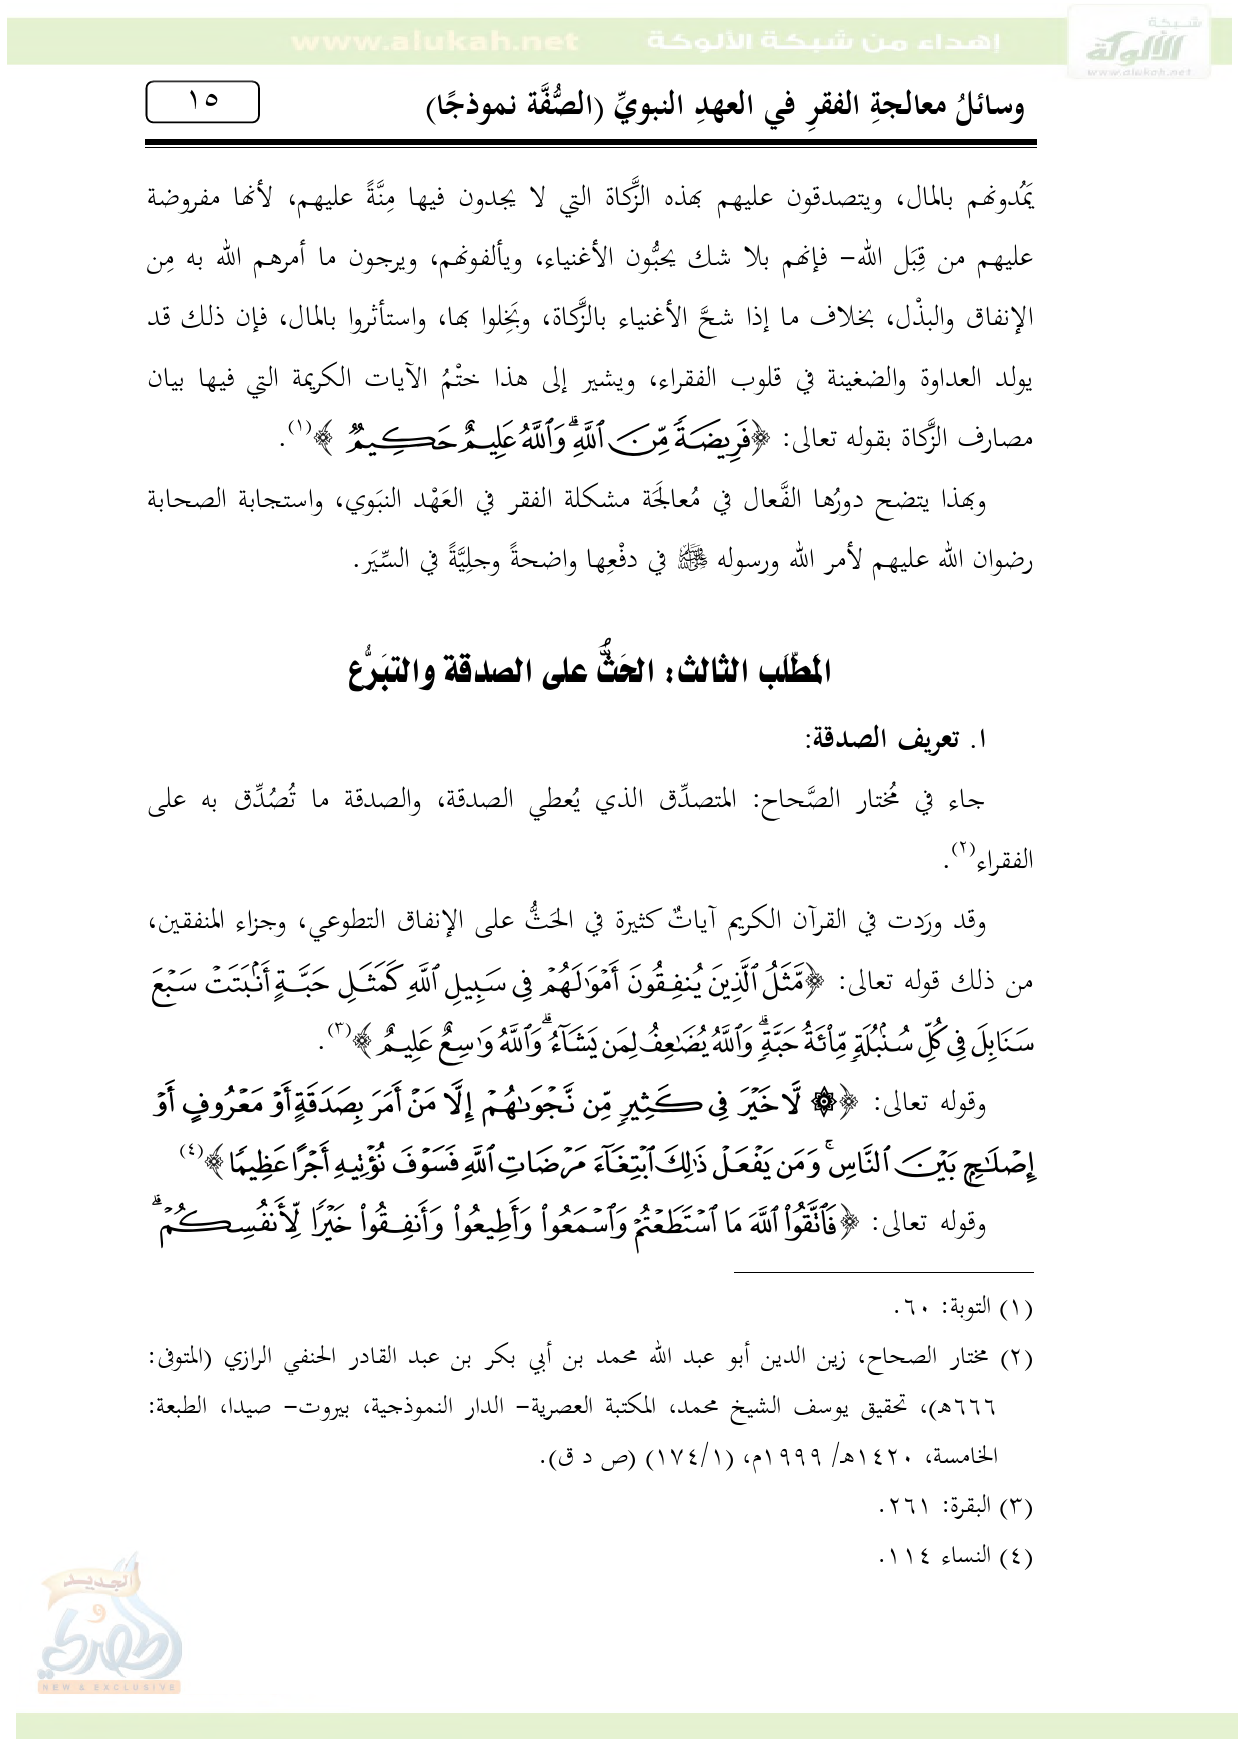 www.alukah.net إهداء من شبكة الألوكة
شبكة
الألوكة
www.alukah.net
وسائلُ معالجةِ الفقرِ في العهدِ النبويِّ (الصُّفَّة نموذجًا)
١٥
يَمُدونهم بالمال، ويتصدقون عليهم بهذه الزَّكاة التي لا يجدون فيها مِنَّةً عليهم، لأنها مفروضة
عليهم من قِبَل الله– فإنهم بلا شك يحبُّون الأغنياء، ويألفونهم، ويرجون ما أمرهم الله به مِن
الإنفاق والبذْل، بخلاف ما إذا شحَّ الأغنياء بالزَّكاة، وبَخِلوا بها، واستأثروا بالمال، فإن ذلك قد
يولد العداوة والضغينة في قلوب الفقراء، ويشير إلى هذا ختْمُ الآيات الكريمة التي فيها بيان
مصارف الزَّكاة بقوله تعالى: ﴿فَرِيضَةً مِّنَ ٱللَّهِۗ وَٱللَّهُ عَلِيمٌ حَكِيمٌ ﴾(١).
وبهذا يتضح دورُها الفَّعال في مُعالجَة مشكلة الفقر في العَهْد النبَوي، واستجابة الصحابة
رضوان الله عليهم لأمر الله ورسوله ﷺ في دفْعِها واضحةً وجلِيَّةً في السِّيَر.
المَطْلَب الثالث: الحَثُّ على الصدقة والتبَرُّع
١. تعريف الصدقة:
جاء في مُختار الصَّحاح: المتصدِّق الذي يُعطي الصدقة، والصدقة ما تُصُدِّق به على
الفقراء(٢).
وقد ورَدت في القرآن الكريم آياتٌ كثيرة في الحَثُّ على الإنفاق التطوعي، وجزاء المنفقين،
من ذلك قوله تعالى: ﴿مَّثَلُ ٱلَّذِينَ يُنفِقُونَ أَمْوَٰلَهُمْ فِى سَبِيلِ ٱللَّهِ كَمَثَلِ حَبَّةٍ أَنۢبَتَتْ سَبْعَ
سَنَابِلَ فِى كُلِّ سُنۢبُلَةٍ مِّا۟ئَةُ حَبَّةٍۗ وَٱللَّهُ يُضَٰعِفُ لِمَن يَشَآءُۗ وَٱللَّهُ وَٰسِعٌ عَلِيمٌ ﴾(٣).
وقوله تعالى: ﴿۞ لَّا خَيْرَ فِى كَثِيرٍ مِّن نَّجْوَىٰهُمْ إِلَّا مَنْ أَمَرَ بِصَدَقَةٍ أَوْ مَعْرُوفٍ أَوْ
إِصْلَٰحٍۭ بَيْنَ ٱلنَّاسِۚ وَمَن يَفْعَلْ ذَٰلِكَ ٱبْتِغَآءَ مَرْضَاتِ ٱللَّهِ فَسَوْفَ نُؤْتِيهِ أَجْرًا عَظِيمًا ﴾(٤)
وقوله تعالى: ﴿فَٱتَّقُوا۟ ٱللَّهَ مَا ٱسْتَطَعْتُمْ وَٱسْمَعُوا۟ وَأَطِيعُوا۟ وَأَنفِقُوا۟ خَيْرًا لِّأَنفُسِكُمْۗ
(١) التوبة: ٦٠.
(٢) مختار الصحاح، زين الدين أبو عبد الله محمد بن أبي بكر بن عبد القادر الحنفي الرازي (المتوفى:
٦٦٦هـ)، تحقيق يوسف الشيخ محمد، المكتبة العصرية– الدار النموذجية، بيروت– صيدا، الطبعة:
الخامسة، ١٤٢٠هـ/ ١٩٩٩م، (١/ ١٧٤) (ص د ق).
(٣) البقرة: ٢٦١.
(٤) النساء ١١٤.
الجديد
و
الحصري
NEW & EXCLUSIVE